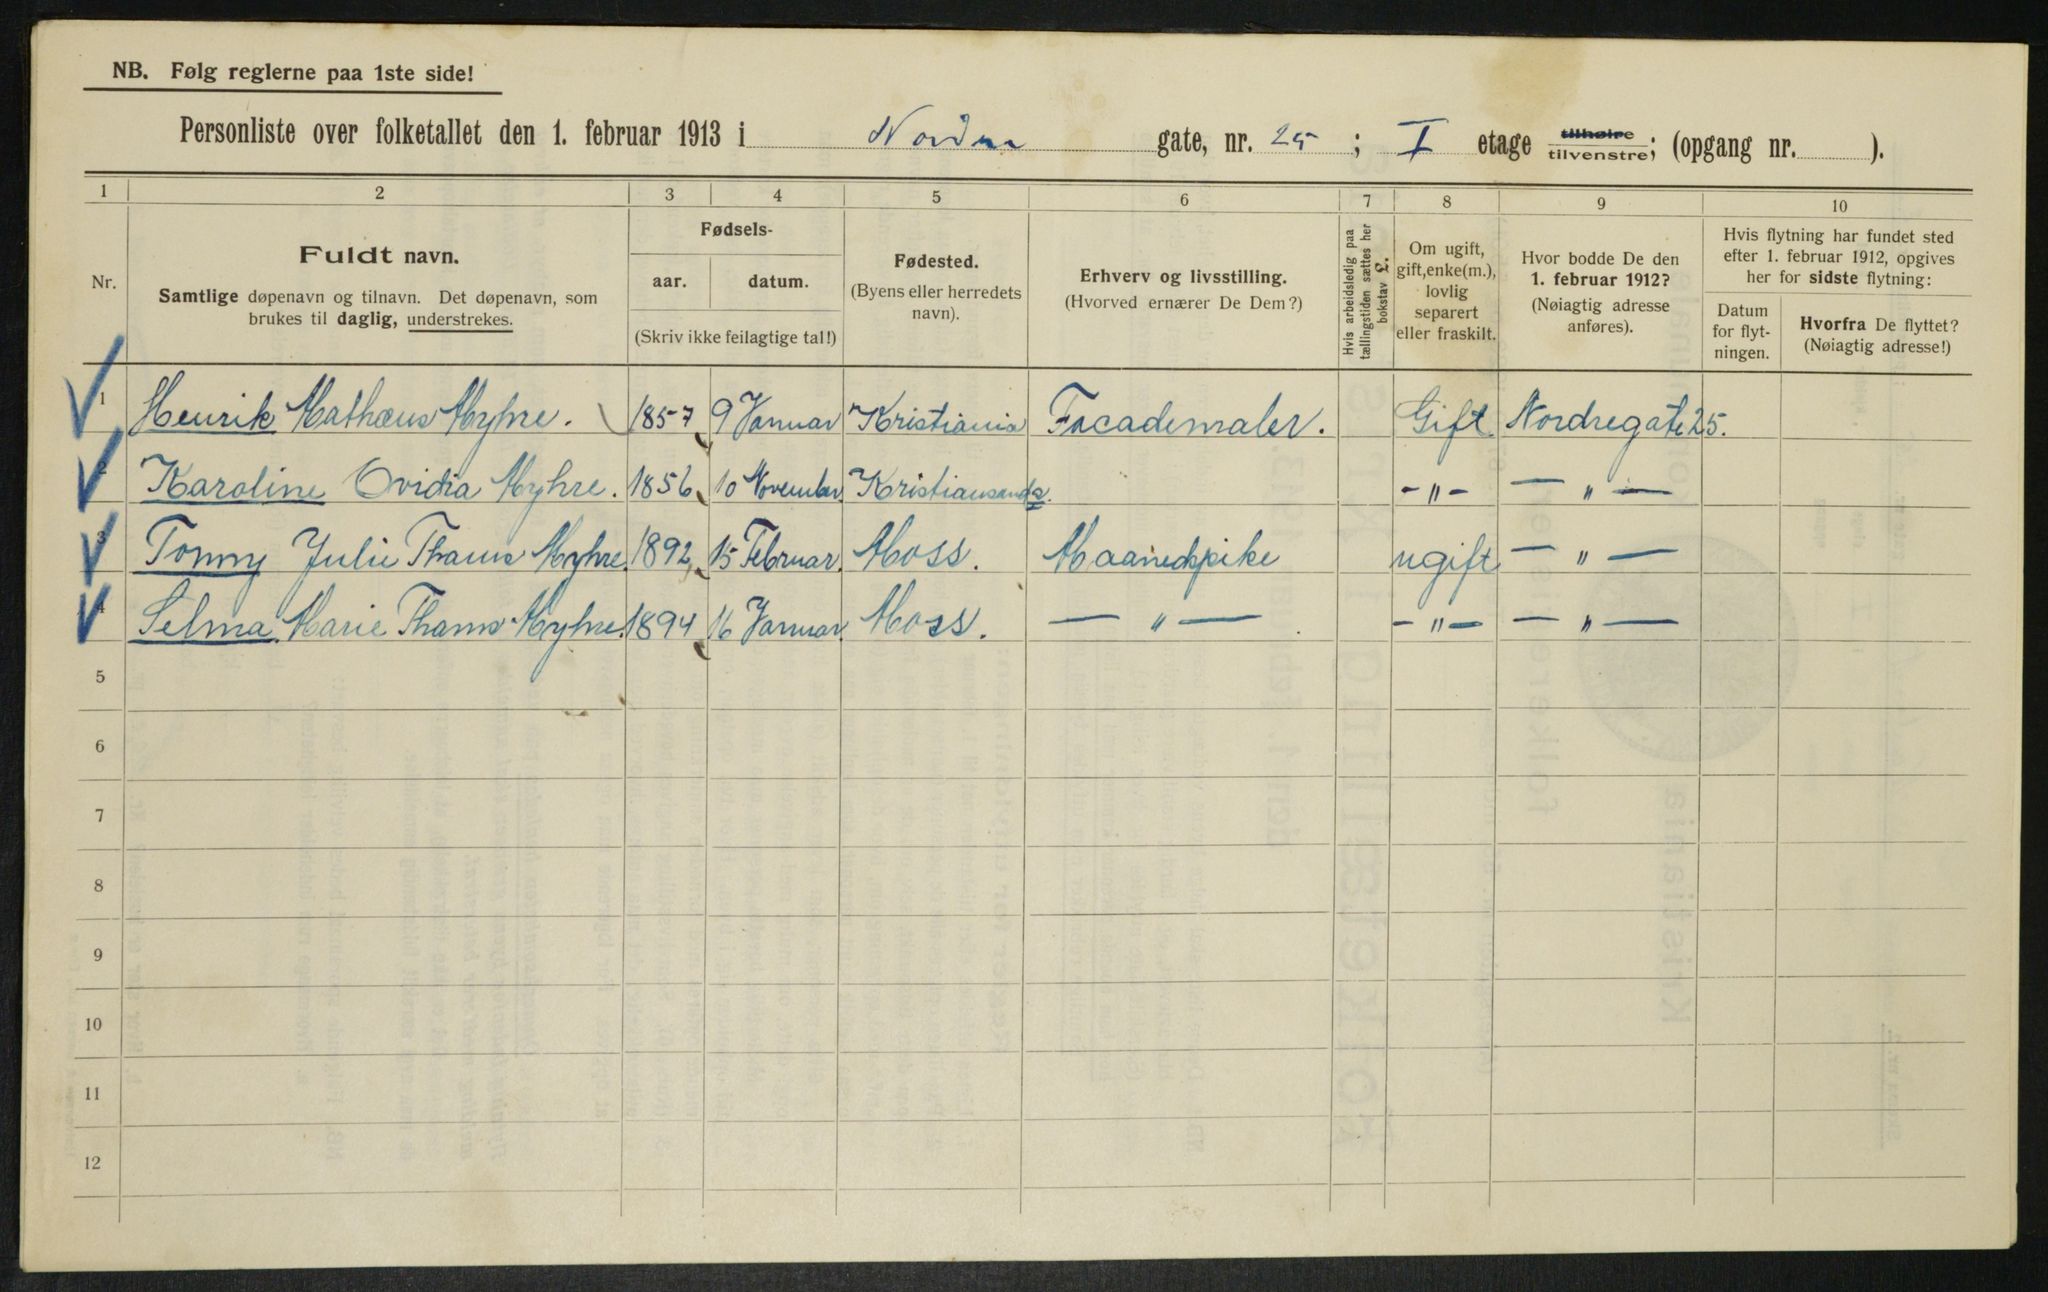 NB. Følg reglerne paa 1ste side!
Personliste over folketallet den 1. februar 1913 i Nordre gate, nr. 25 ; I etage tilhøire tilvenstre; (opgang nr. ).
1 2 3 4 5 6 7 8 9 10
Nr.
Fuldt navn.
Samtlige døpenavn og tilnavn. Det døpenavn, som
brukes til daglig, understrekes.
Fødsels-
aar. datum.
(Skriv ikke feilagtige tal!)
Fødested.
(Byens eller herredets
navn).
Erhverv og livsstilling.
(Hvorved ernærer De Dem?)
Hvis arbeidsledig paa
tællingstiden sættes her
bokstav £.
Om ugift,
gift, enke(m.),
lovlig
separert
eller fraskilt.
Hvor bodde De den
1. februar 1912?
(Nøiagtig adresse
anføres).
Hvis flytning har fundet sted
efter 1. februar 1912, opgives
her for sidste flytning:
Datum
for flyt-
ningen.
Hvorfra De flyttet?
(Nøiagtig adresse!)
1 Henrik Mathæus Myhre. 1857 9 Januar Kristiania Facademaler. Gift Nordregate 25.
2 Karoline Ovidia Myhre. 1856 10 November. Kristiansand S. -"- — " —
3 Tonny Julie Thams Myhre. 1892 15 Februar. Moss. Maanedspike ugift — " —
4 Selma Marie Thams Myhre. 1894 16 Januar. Moss. — " — . -"- — " —
5
6
7
8
9
10
11
12